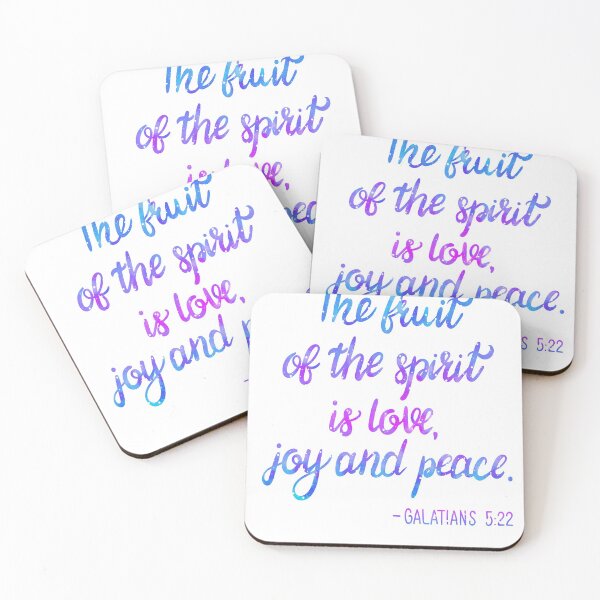 The fruit
of the spirit
is love,
The fruit
of the spirit
is love,
joy and peace.
5:22
The fruit
of the spirit
is love,
joy and
The fruit
of the spirit
is love,
joy and peace.
–GALATIANS 5:22